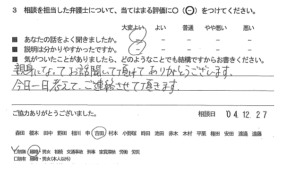 3 相談を担当した弁護士について、当てはまる評価に〇(⊙)をつけてください。
大変よい よい 普通 やや悪い 悪い
■ あなたの話をよく聞きましたか。
■ 説明は分かりやすかったですか。
■ 気がついたことがありましたら、どのようなことでも結構ですからお書きください。
親身になってお話聞いて頂けてありがとうございます。
今日一日考えて、ご連絡させて頂きます。
ご協力ありがとうございました。 相談日 '04.12.27